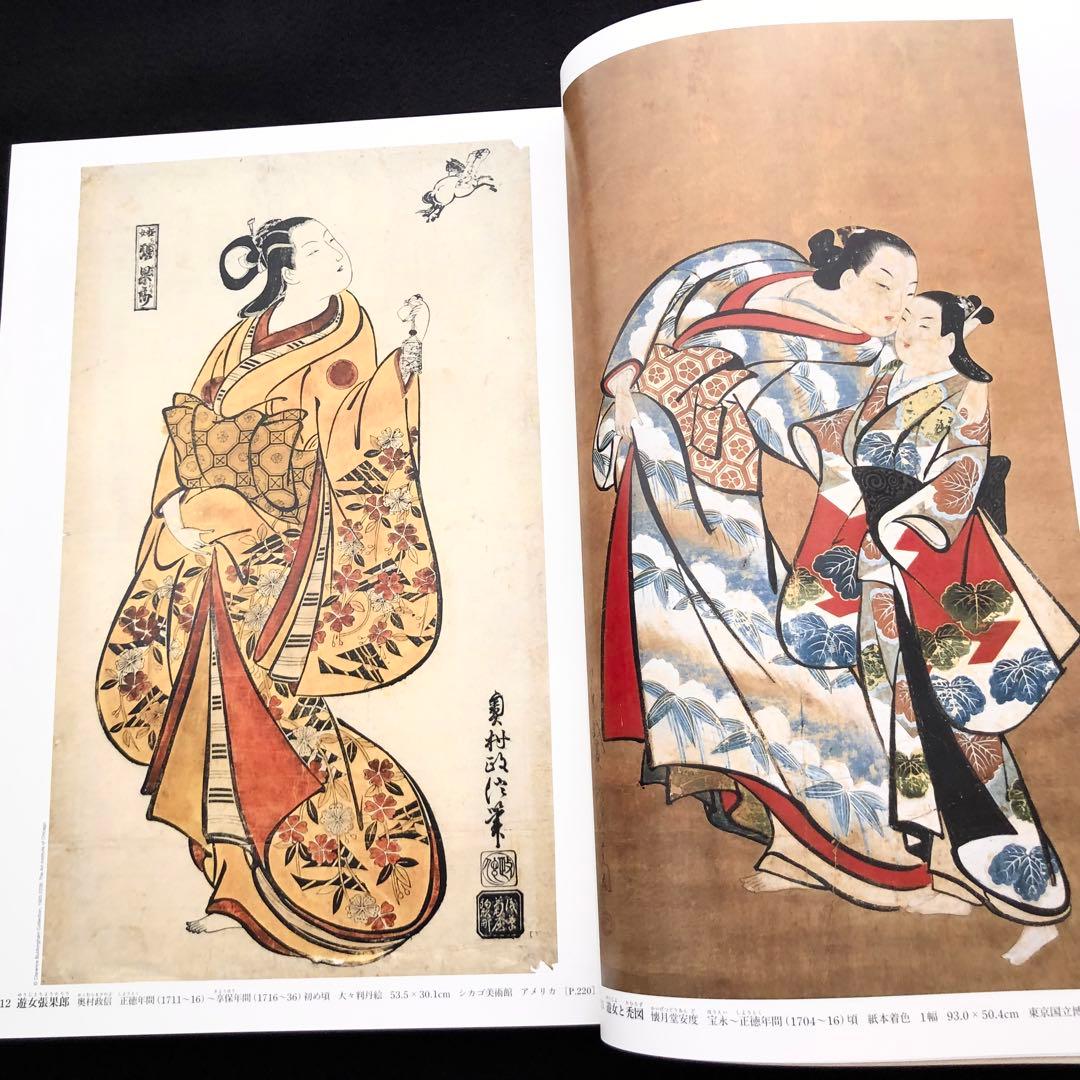 奥村政信筆
政信
© Clarence Buckingham Collection
12 遊女張果郎 奥村政信 正徳年間(1711~16)~享保年間(1716~36)初め頃 大々判丹絵 53.5×30.1cm シカゴ美術館 アメリカ [P.220]
遊女と禿図 懐月堂安度 宝永~正徳年間(1704~16)頃 紙本着色 1幅 93.0×50.4cm 東京国立博